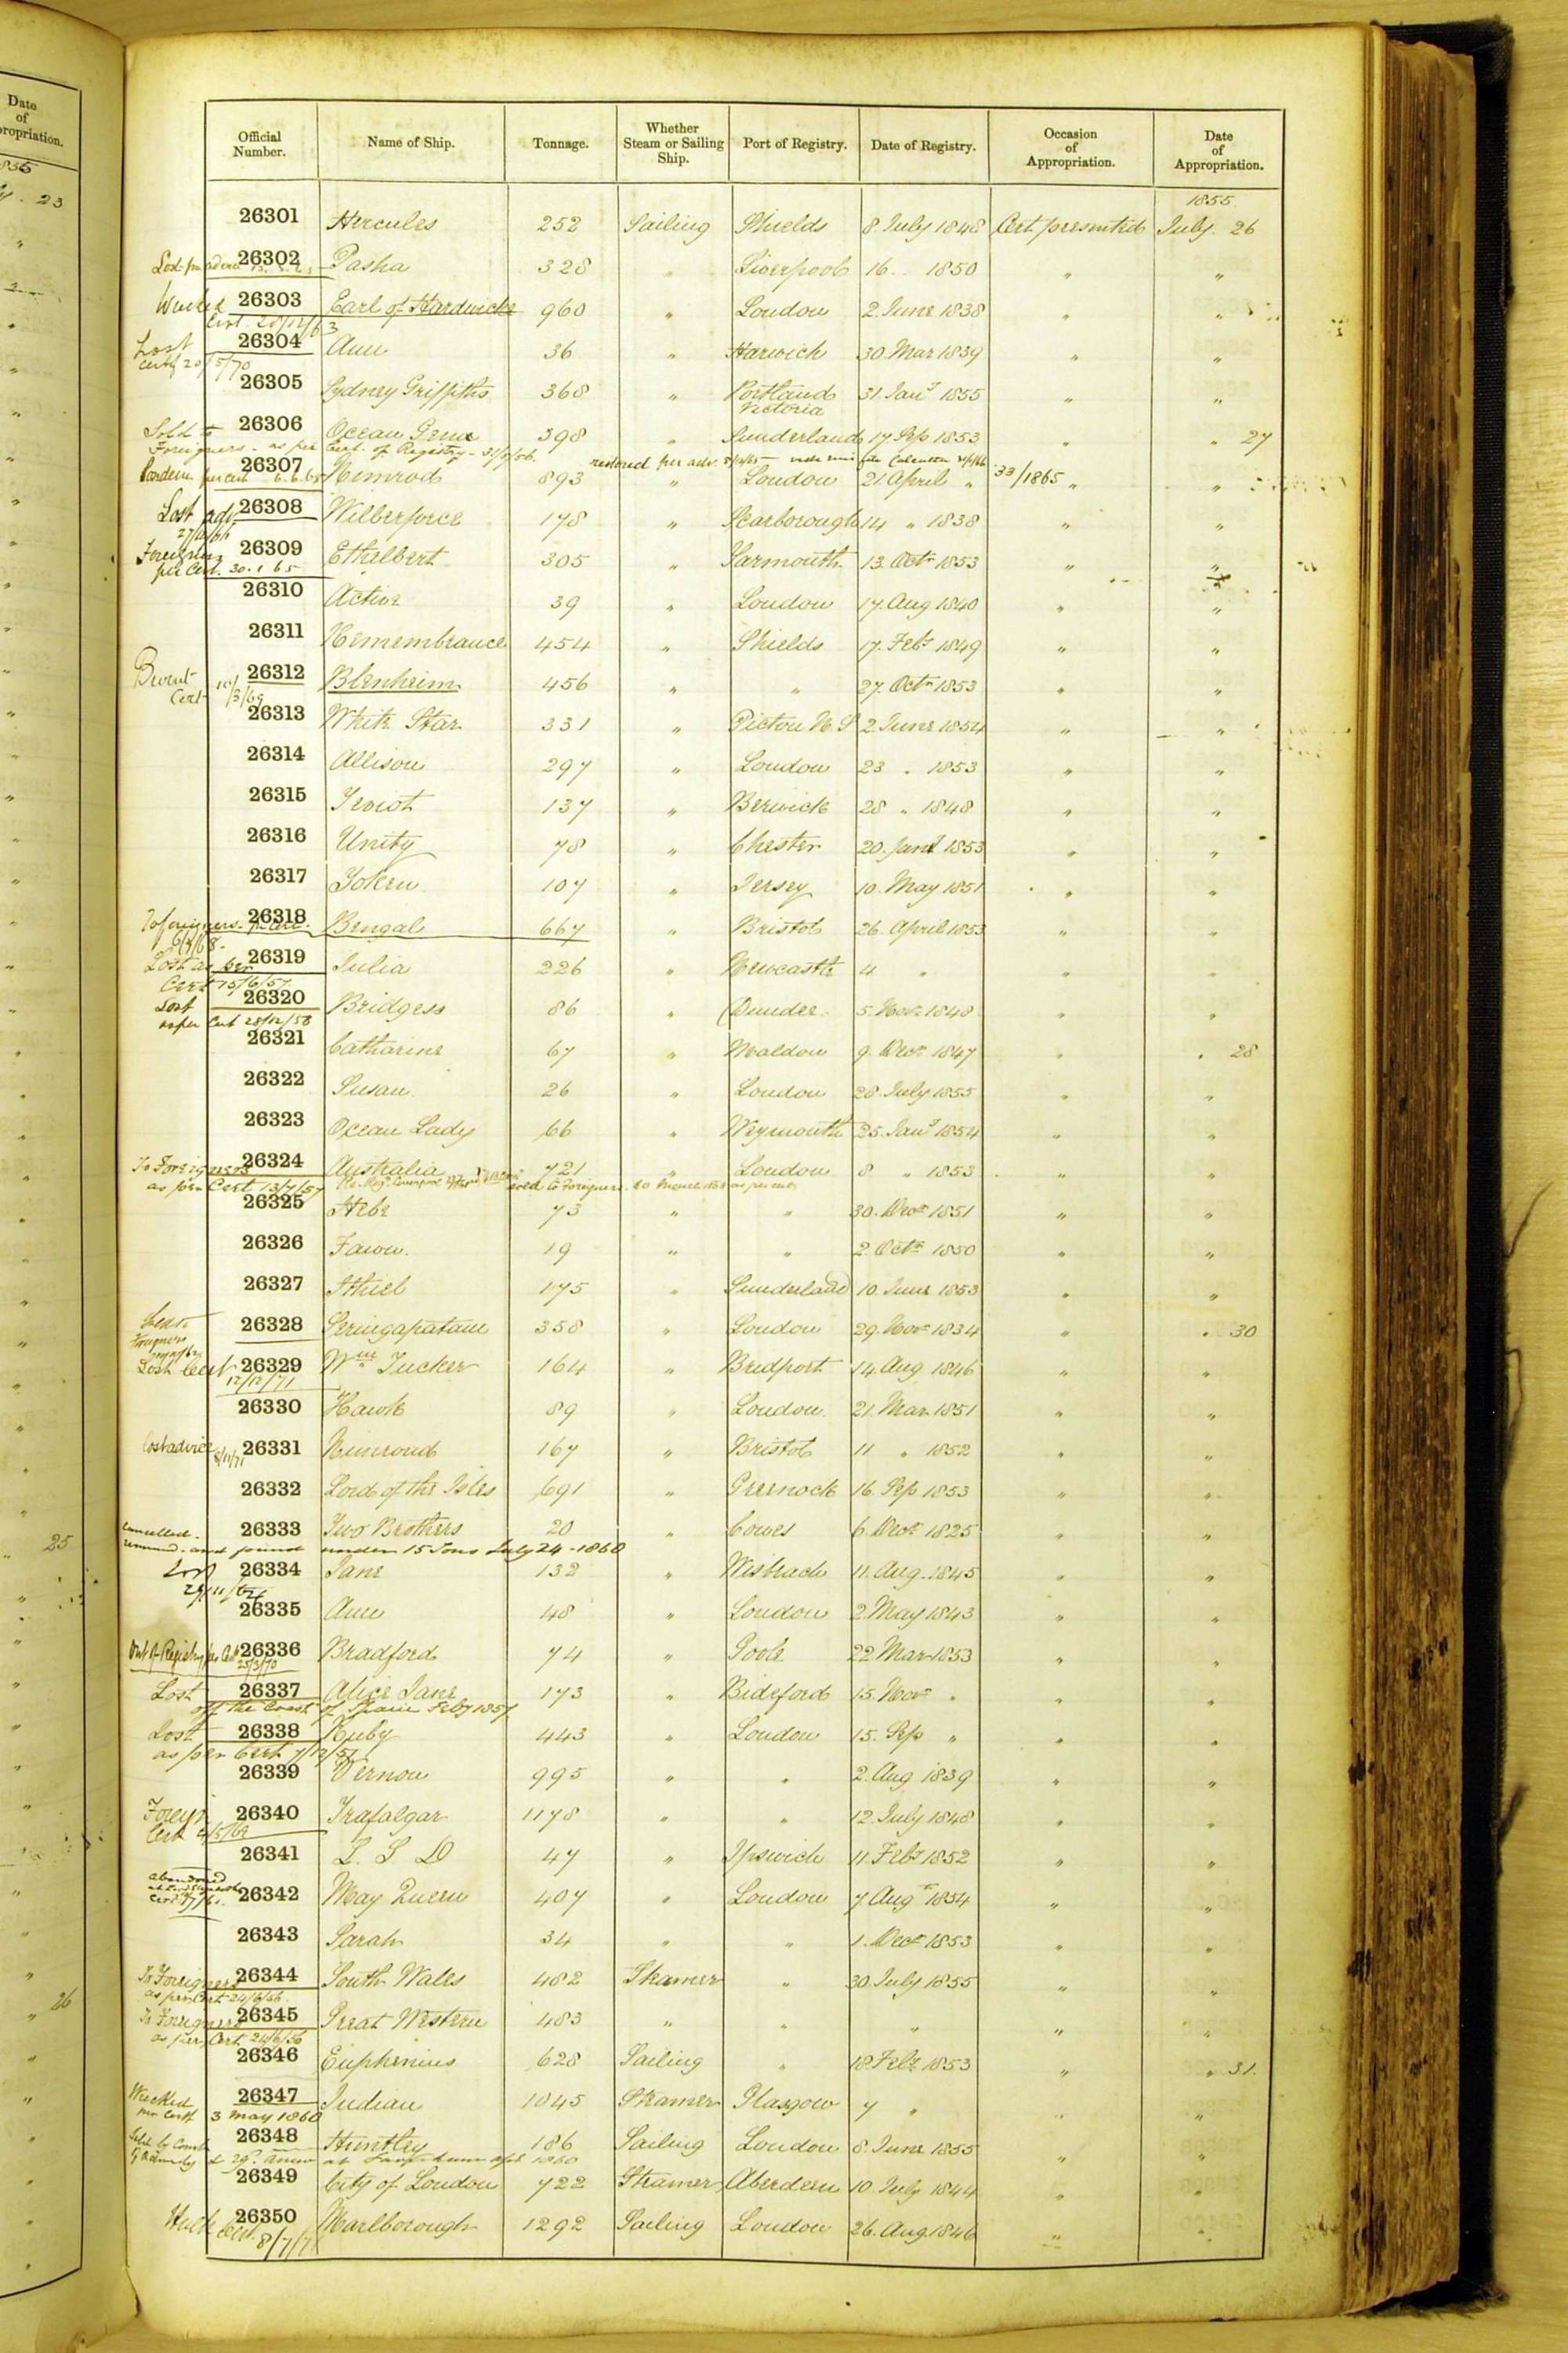 Date
of
propriation.
1856
23
25
26
Official Number. Name of Ship. Tonnage. Whether Steam or Sailing Ship. Port of Registry. Date of Registry. Occasion of Appropriation. Date of Appropriation.
1855
26301 Hercules 252 Sailing Shields 8 July 1848 Cert presented July 26
Lost pr advice 26302 Pasha 328 " Liverpool 16 " 1850 " "
Wrecked 26303 Earl of Hardwicke 960 " London 2 June 1838 " "
Cert. 28/12/63
Lost 26304 Ann 36 " Harwich 30 Mar 1839 " "
Certf 20/5/70
26305 Sydney Griffiths 368 " Portland Victoria 31 Jany 1855 " "
Sold to 26306 Ocean Gem 398 " Sunderland 17 Sep 1853 " " 27
Foreigners. as per Cert. of Registry - 31/7/56.
restored per adv.
26307 Nimrod 893 " London 21 April " 33/1865 " "
per cert 6.6.65
Lost adv 26308 Wilberforce 178 " Scarborough 14 " 1838 " "
Foreigners 26309 Ethelbert 305 " Yarmouth 13 Octr 1853 " "
per Cert. 30.1.65
26310 Active 39 " London 17 Aug 1840 " "
26311 Remembrance 454 " Shields 17 Feby 1849 " "
Burnt 26312 Blenheim 456 " " 27 Octr 1853 " "
Cert 10/3/69
26313 White Star 331 " Pictou N.S 2 June 1854 " "
26314 Allison 297 " London 23 " 1853 " "
26315 Teviot 137 " Berwick 28 " 1848 " "
26316 Unity 78 " Chester 20 Jany 1853 " "
26317 Token 107 " Jersey 10 May 1851 " "
To foreigners. pr Cert. 26318 Bengal 667 " Bristol 26 April 1853 " "
Lost as per 26319 Julia 226 " Newcastle 4 " " "
Cert 15/6/57
Lost 26320 Bridgess 86 " Dundee 5 Nov 1848 " "
as per Cert 28/12/58
26321 Catharine 67 " Maldon 9 Decr 1847 " " 28
26322 Susan 26 " London 28 July 1855 " "
26323 Ocean Lady 66 " Weymouth 25 Jany 1854 " "
To Foreigners 26324 Australia 721 " London 8 " 1853 " "
as per Cert 13/7/57 sold to Foreigners. as per cert.
26325 Hebe 73 " " 30 Decr 1851 " "
26326 Fawn 19 " " 2 Octr 1850 " "
26327 Ithiel 175 " Sunderland 10 June 1853 " "
Foreigners 26328 Seringapatam 358 " London 29 Novr 1834 " " 30
Lost Cert 26329 Wm Tucker 164 " Bridport 14 Aug 1846 " "
12/12/71
26330 Hawk 89 " London 21 Mar 1851 " "
Lost advice 8/11/71 26331 Nimroud 167 " Bristol 11 " 1852 " "
26332 Lord of the Isles 691 " Greenock 16 Sep 1853 " "
Cancelled. 26333 Two Brothers 20 " Cowes 6 Decr 1825 " "
remeasd. and found under 15 Tons July 24 - 1860
Lost 26334 Jane 132 " Wisbeach 11 Aug 1845 " "
26335 Ann 48 " London 2 May 1843 " "
Out of Registry per Cert 26336 Bradford 74 " Poole 22 Mar 1853 " "
25/3/70
Lost 26337 Alice Jane 173 " Bideford 15 Novr " " "
off the Coast of Spain Feby 1857
Lost 26338 Ruby 443 " London 15 Sep " " "
as per Cert 7/12/57
26339 Vernon 995 " " 2 Aug 1839 " "
Foreign 26340 Trafalgar 1178 " " 12 July 1848 " "
Cert 2/5/62
26341 L. S. D 47 " Ipswich 11 Feby 1852 " "
abandoned 26342 May Queen 407 " London 7 Augt 1854 " "
26343 Sarah 34 " " 1 Decr 1853 " "
To Foreigners 26344 South Wales 482 Steamer " 30 July 1855 " "
as per Cert 24/6/56
To Foreigners 26345 Great Western 483 " " " " "
as per Cert 24/6/56
26346 Euphemius 628 Sailing " 18 Feby 1853 " " 31
Wrecked 26347 Indian 1045 Steamer Glasgow 7 " " "
per Certf 3 May 1860
26348 Huntley 186 Sailing London 8 June 1855 " "
26349 City of London 722 Steamer Aberdeen 10 July 1844 " "
Hulk 26350 Marlborough 1292 Sailing London 26 Aug 1846 " "
Cert. 8/7/71